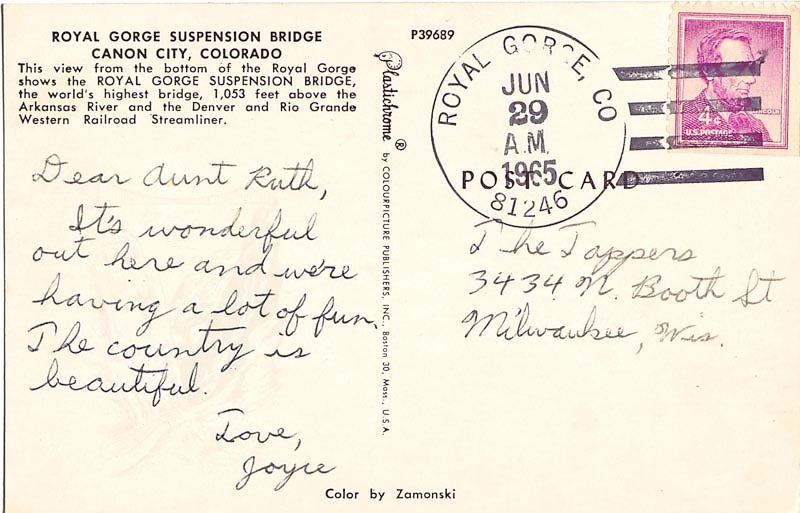 ROYAL GORGE SUSPENSION BRIDGE
CANON CITY, COLORADO
This view from the bottom of the Royal Gorge
shows the ROYAL GORGE SUSPENSION BRIDGE,
the world's highest bridge, 1,053 feet above the
Arkansas River and the Denver and Rio Grande
Western Railroad Streamliner.
Dear Aunt Ruth,
It's wonderful
out here and we're
having a lot of fun.
The country is
beautiful.
Love,
Joyce
Plastichrome ® by COLOURPICTURE PUBLISHERS, INC., Boston 30, Mass., U.S.A.
P39689
ROYAL GORGE, CO
JUN
29
A.M.
1965
81246
LINCOLN
4¢
U.S. POSTAGE
POST CARD
The Tappers
3434 N. Booth St
Milwaukee, Wis.
Color by Zamonski